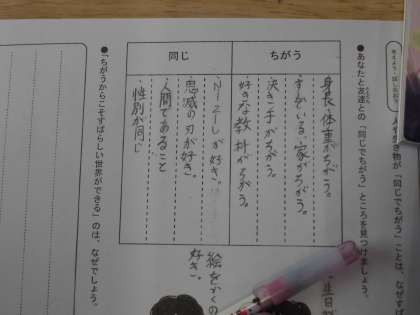 考えよう・話し合おう
●あなたと友達との「同じでちがう」ところを見つけましょう。
ちがう
身長、体重がちがう。
すんでいる家がちがう。
決き手がちがう。
好きな教科がちがう。
同じ
NiziUが好き。
鬼滅の刃が好き。
人間であること
性別が同じ
絵をかくの
好き。
●「ちがうからこそすばらしい世界ができる」のは、なぜでしょう。